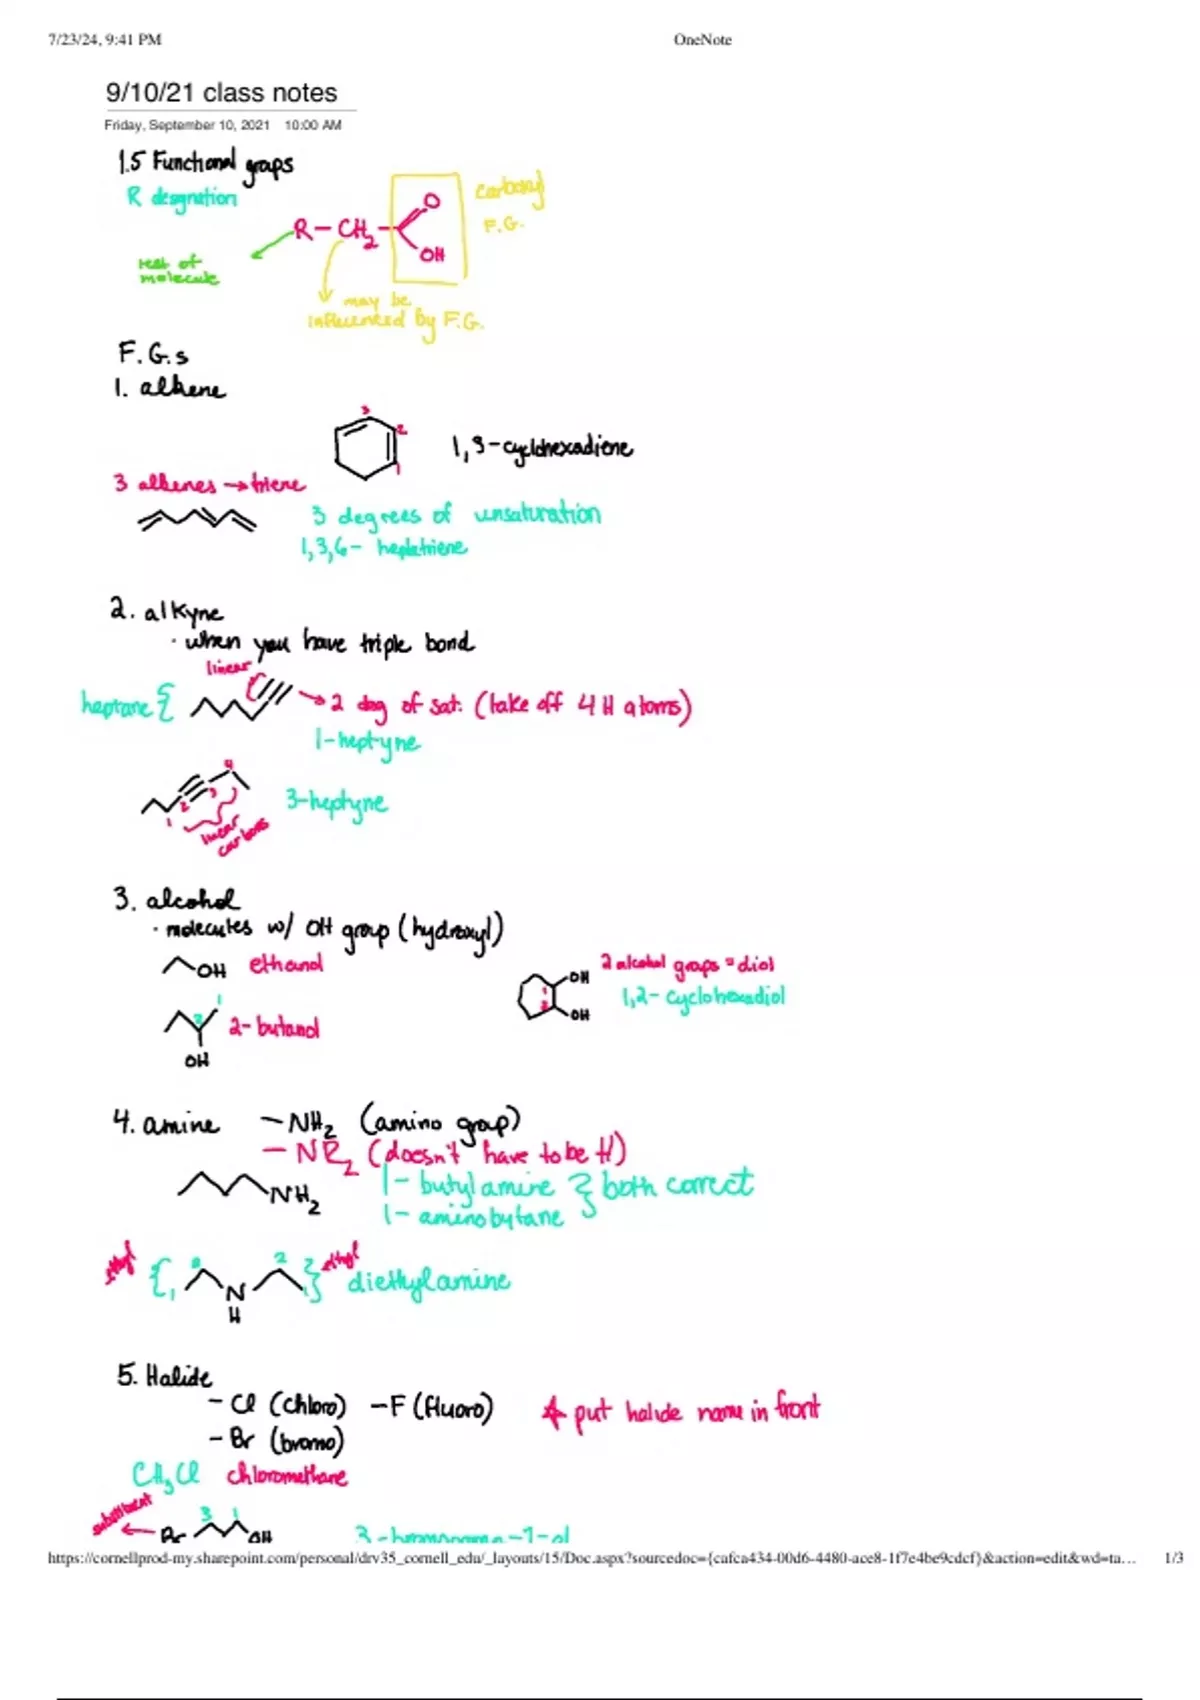 7/23/24, 9:41 PM OneNote
9/10/21 class notes
Friday, September 10, 2021 10:00 AM
1.5 Functional groups
R designation
carboxyl
F.G.
R-CH2- O OH
rest of
molecule
may be
influenced by F.G.
F.G.s
1. alkene
3
2
1
1,3-cyclohexadiene
3 alkenes → triene
3 degrees of unsaturation
1,3,6- heptatriene
2. alkyne
· when you have triple bond
linear
heptane {
→ 2 deg of sat. (take off 4 H atoms)
1-heptyne
4
3
2
1
3-heptyne
linear
carbons
3. alcohol
· molecules w/ OH group (hydroxyl)
OH ethanol
OH
OH
1
2
2 alcohol groups = diol
1,2- cyclohexadiol
1
2
2- butanol
OH
4. amine -NH2 (amino group)
- NR2 (doesn't have to be H)
NH2
1- butylamine } both correct
1- aminobutane
ethyl { 1 2 N H 2 1 } ethyl diethylamine
5. Halide
- Cl (chloro) -F (fluoro) * put halide name in front
- Br (bromo)
CH3Cl chloromethane
substituent
← Br 3 1 OH 3-bromopropan-1-ol
https://cornellprod-my.sharepoint.com/personal/drv35_cornell_edu/_layouts/15/Doc.aspx?sourcedoc={cafca434-00d6-4480-ace8-1f7e4be9cdcf}&action=edit&wd=ta… 1/3